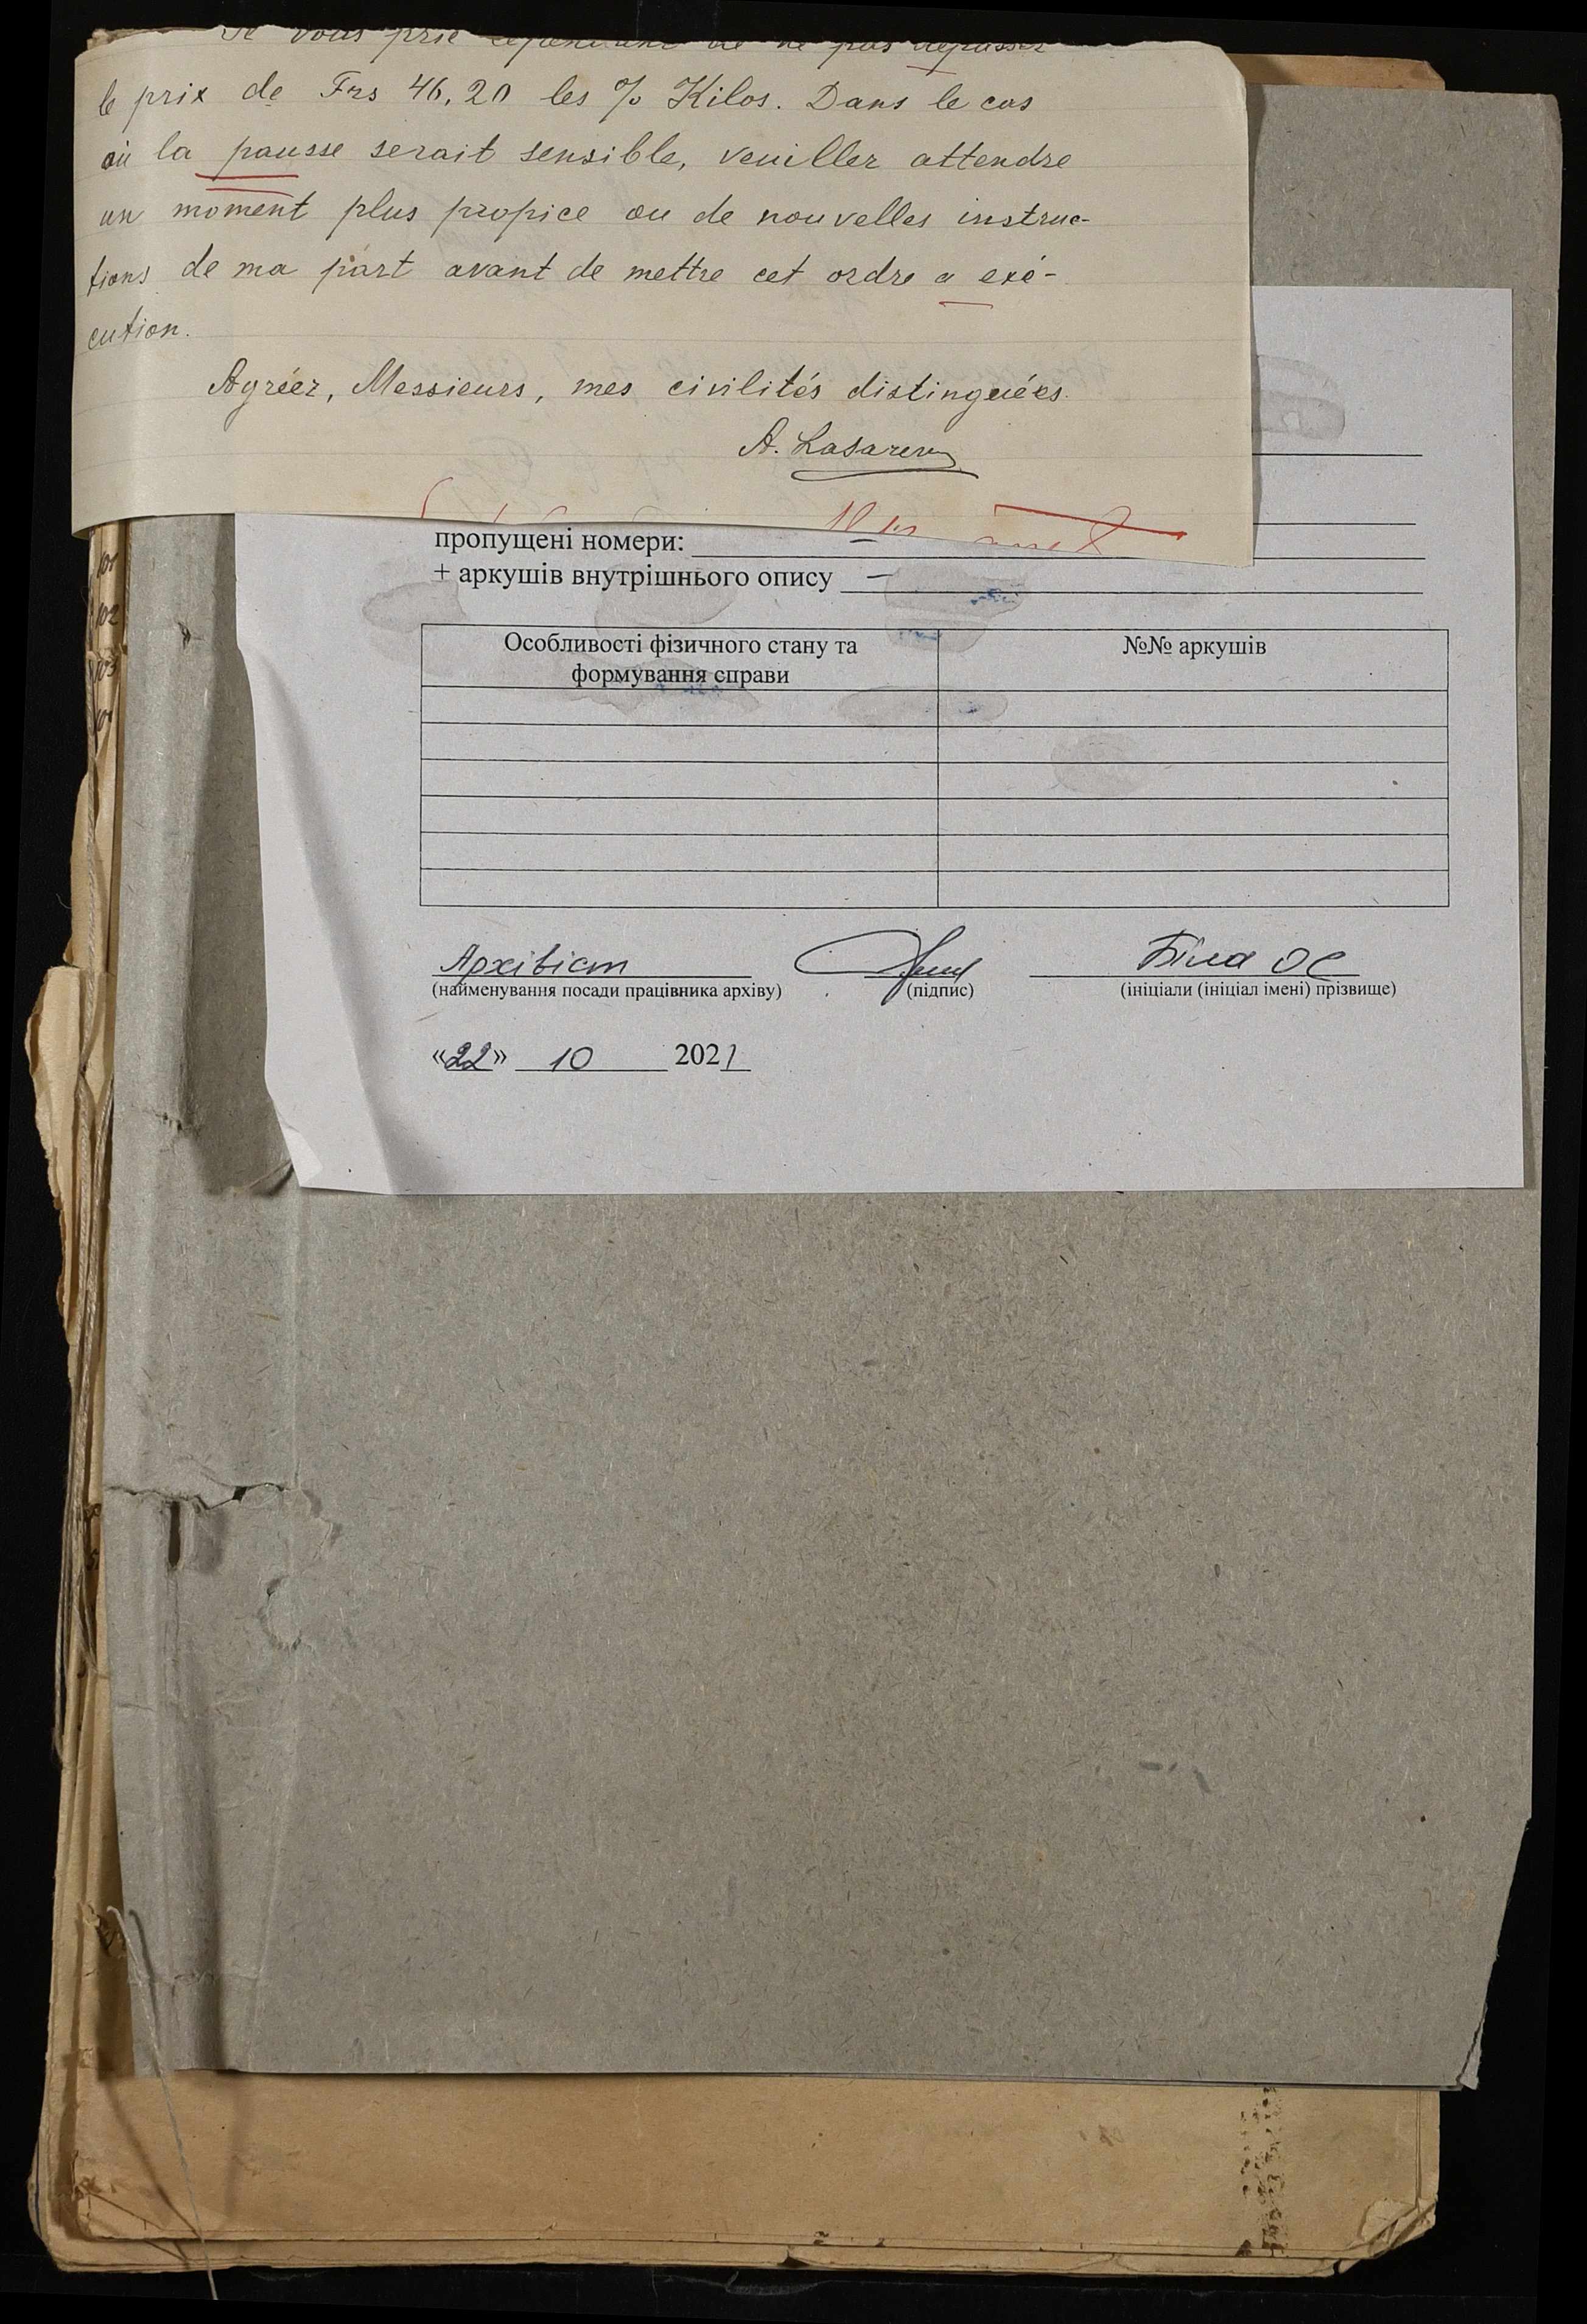 Je vous prie cependant de ne pas dépasser
le prix de Frs 46,20 les % Kilos. Dans le cas
où la pausse serait sensible, veuiller attendre
un moment plus propice ou de nouvelles instruc-
tions de ma part avant de mettre cet ordre a exé-
cution.
Agréer, Messieurs, mes civilités distinguées.
A. Lasarew
пропущені номери: –
+ аркушів внутрішнього опису –
Особливості фізичного стану та
формування справи
№№ аркушів
Архівіст
Біла ОС
(найменування посади працівника архіву) (підпис) (ініціали (ініціал імені) прізвище)
«22» 10 2021